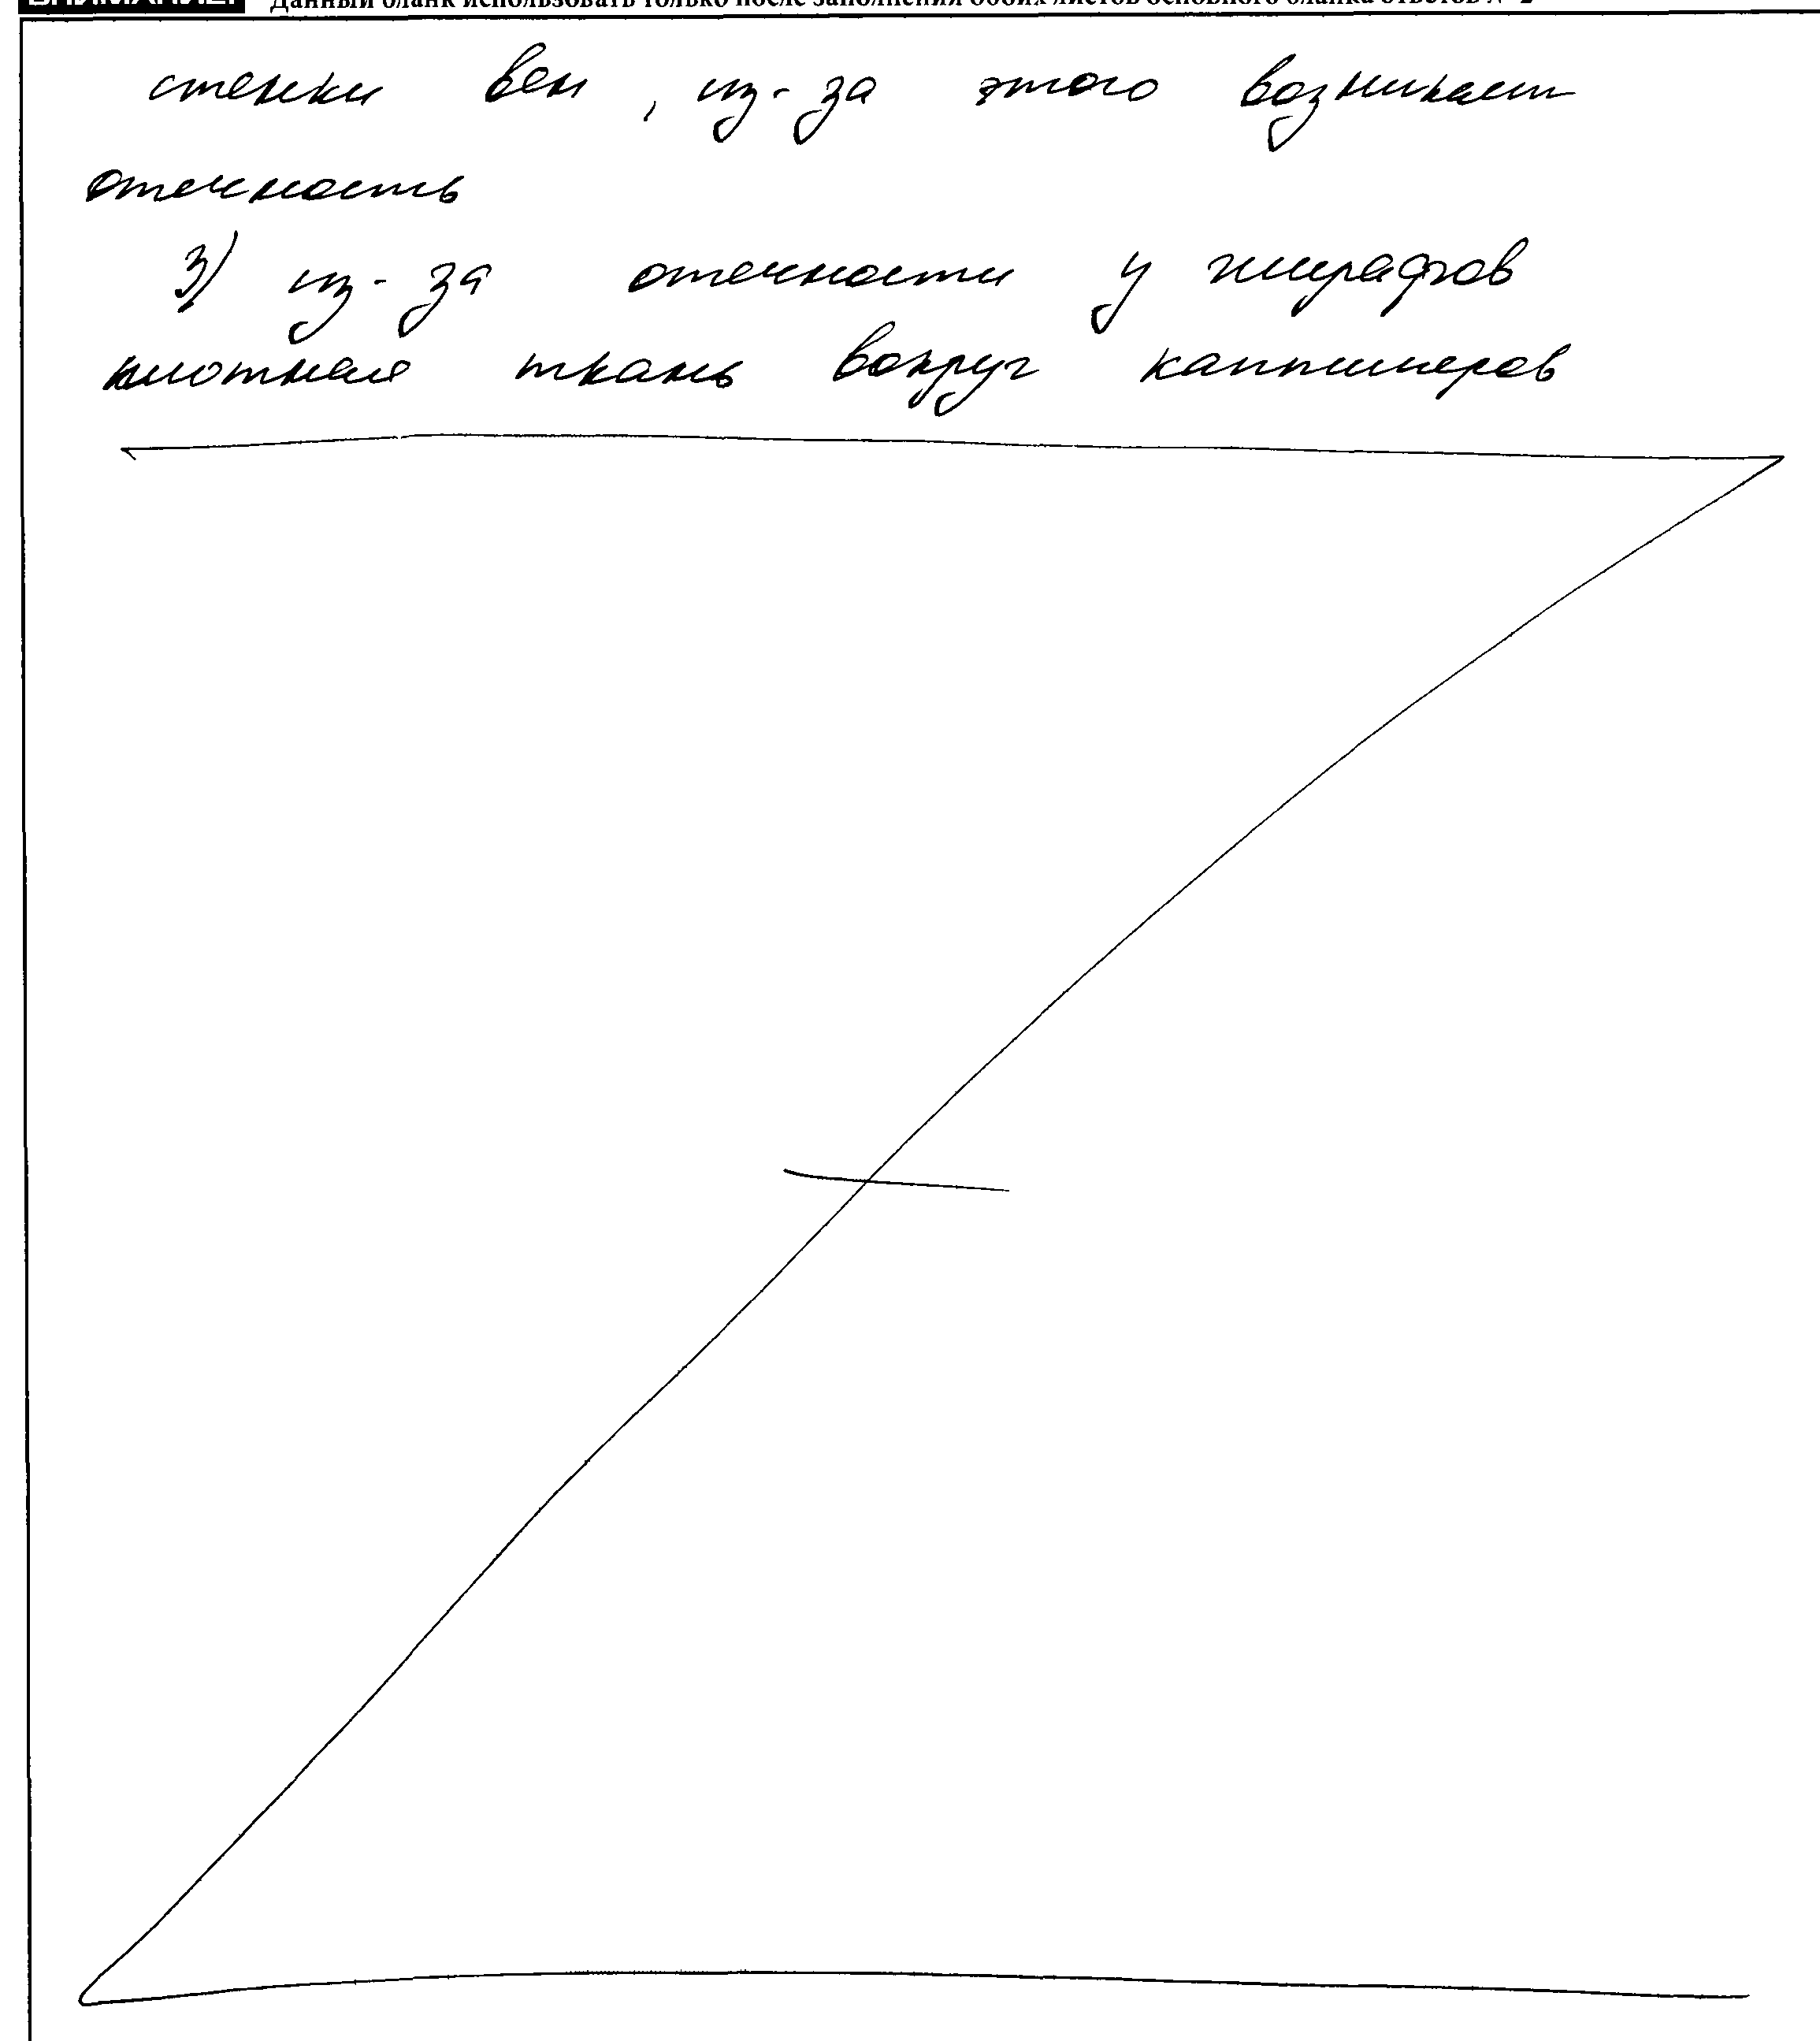 ВНИМАНИЕ! Данный бланк использовать только после заполнения обоих листов основного бланка ответов № 2
стенки вен, из-за этого возникает
отечность
3) из-за отечности у жирафов
плотная ткань вокруг каппиляров